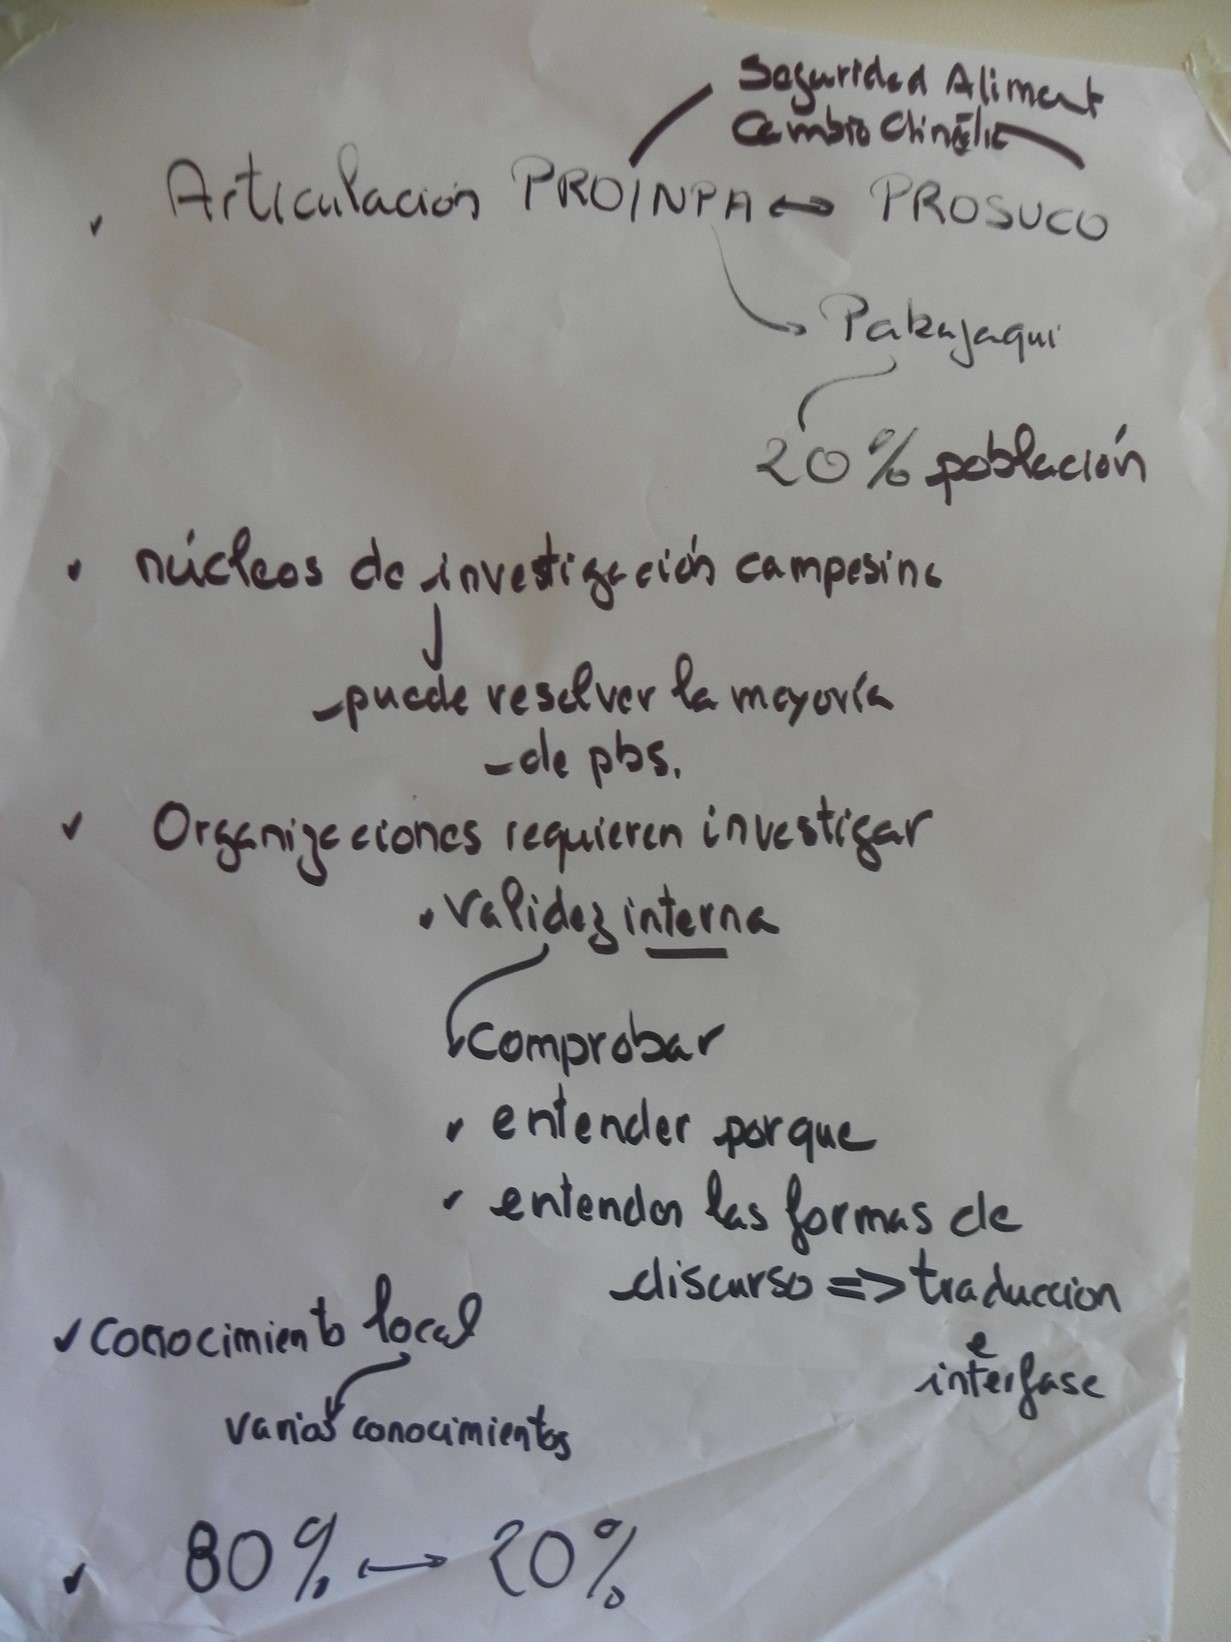 Seguridad Aliment
Cambio Climátic
Articulación PROINPA ↔ PROSUCO
Pakajaqui
20% población
núcleos de investigación campesina
puede resolver la mayoría
de pbs.
Organizaciones requieren investigar
validez interna
comprobar
entender porque
entender las formas de
discurso => traduccion
e
interfase
conocimiento local
varios conocimientos
80% ↔ 20%